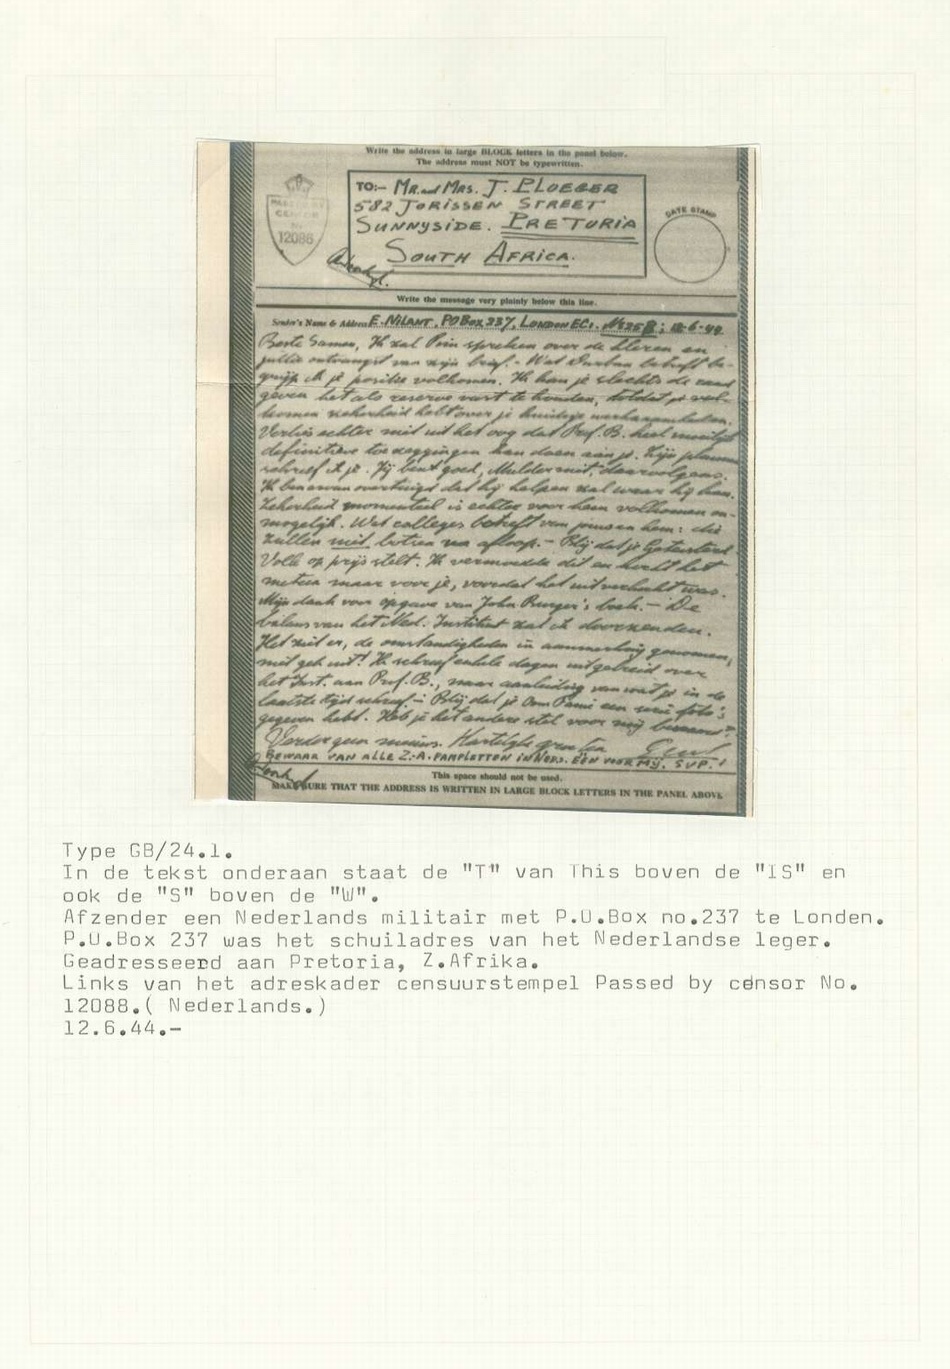 Write the address in large BLOCK letters in the panel below.
The address must NOT be typewritten.
PASSED BY
CENSOR
No
12086
TO:- MR. and MRS. J. PLOEGER
582 JORISSEN STREET
SUNNYSIDE. PRETORIA
SOUTH AFRICA.
DATE STAMP
Write the message very plainly below this line.
Sender's Name & Address E. NILANT, PO Box 237, LONDON EC1. No 525B; 12-6-44.
Beste Samen, Ik zal Pim spreken over de kleren en
jullie ontvangst van mijn brief.- Wat Durban betreft be-
grijp ik je positie volkomen. Ik kan je slechts de raad
geven het als reserve vast te houden, totdat je vol-
komen zekerheid hebt over je huidige werkzaamheden.
Verlies echter niet uit het oog dat Prof. B. heel moeilijk
definitieve toezeggingen kan doen aan je. Zijn plannen
schreef ik je. Jij bent goed, Mulder niet, daarvolgens.
Ik ben ervan overtuigd dat hij helpen zal waar hij kan.
Zekerheid momenteel is echter voor hem volkomen on-
mogelijk. Wat colleges betreft van jous en hem: die
zullen niet botsen na afloop.- Blij dat je Geteisterd
Volk op prijs stelt. Ik vermoedde dit en kocht het
meteen maar voor je, voordat het uitverkocht was.
Mijn dank voor opgave van John Burger's boek.- De
balans van het Ned. Instituut zal ik doorzenden.
Het ziet er, de omstandigheden in aanmerking genomen,
niet gek uit! Ik schreef enkele dagen uitgebreid over
het Inst. aan Prof. B., naar aanleiding van wat je in de
laatste tijd schreef.- Blij dat je Oom Panie een serie foto's
gegeven hebt. Heb je het andere stel voor mij bewaard?
Verder geen nieuws. Hartelijke groeten
BEWAAR VAN ALLE Z.A. PAMFLETTEN IN NED. EEN VOOR MY. SVP.!
This space should not be used.
MAKE SURE THAT THE ADDRESS IS WRITTEN IN LARGE BLOCK LETTERS IN THE PANEL ABOVE
Type GB/24.1.
In de tekst onderaan staat de "T" van This boven de "IS" en
ook de "S" boven de "W".
Afzender een Nederlands militair met P.O.Box no.237 te Londen.
P.O.Box 237 was het schuiladres van het Nederlandse leger.
Geadresseerd aan Pretoria, Z.Afrika.
Links van het adreskader censuurstempel Passed by censor No.
12088.( Nederlands.)
12.6.44.-